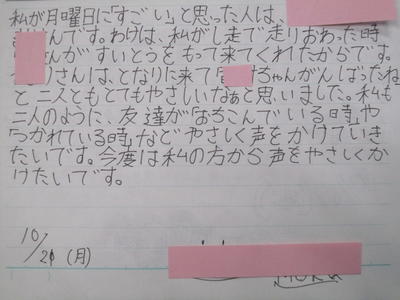 私が月曜日に「すごい」と思った人は、
さんです。わけは、私がし走で走りおわった時
さんがすいとうをもって来てくれたからです。
さんは、となりに来て「ちゃんがんばったね
と二人ともとてもやさしいなぁと思いました。私も
二人のように、友達が「おちこんでいる時」や
「つかれている時」などやさしく声をかけていき
たいです。今度は私の方から声をやさしくか
けたいです。
10/21(月)